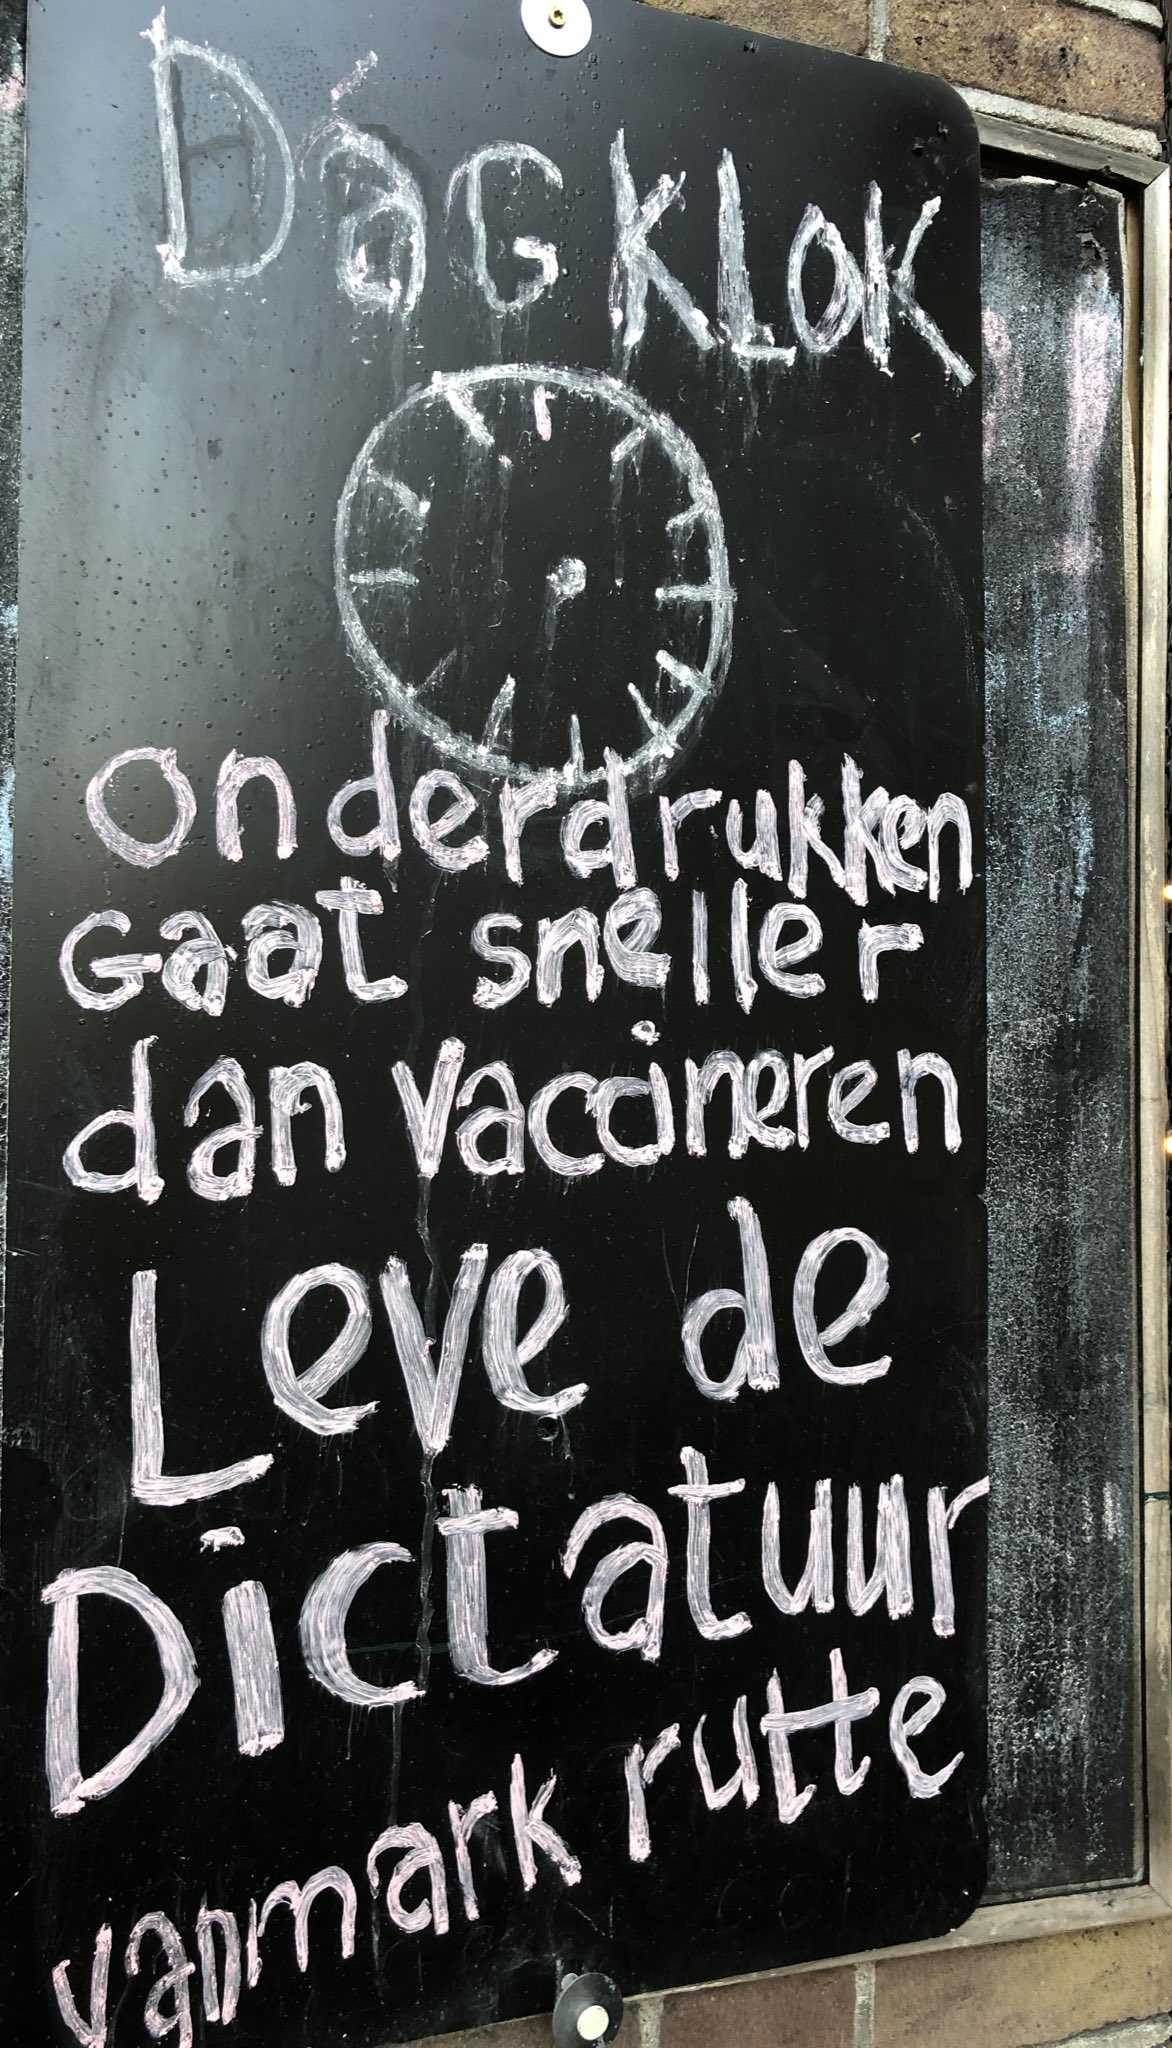 DaG KLOK
Onderdrukken
Gaat sneller
dan vaccineren
Leve de
Dictatuur
van mark rutte